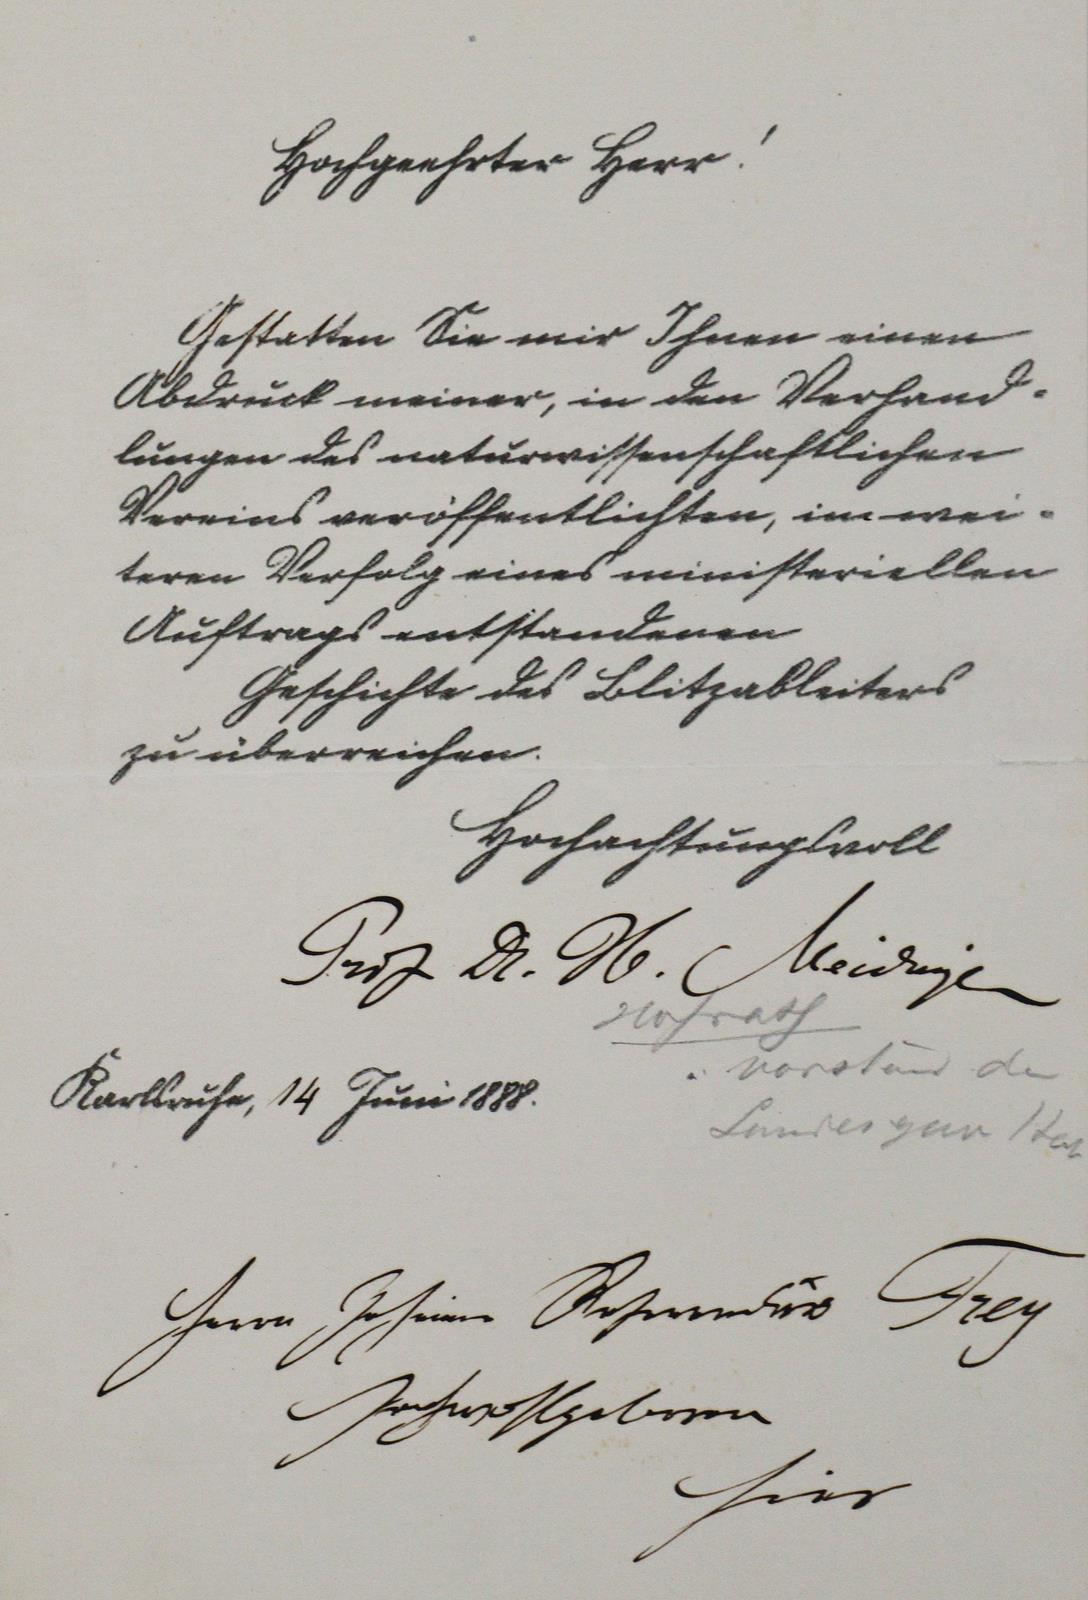 Hochgeehrter Herr!
Gestatten Sie mir Ihnen einen
Abdruck meiner, in den Verhand-
lungen des naturwissenschaftlichen
Vereins veröffentlichten, im wei-
teren Verfolg eines ministeriellen
Auftrags entstandenen
Geschichte des Blitzableiters
zu überreichen.
Hochachtungsvoll
Prof Dr. H. Meidinger
Hofrath
Vorstand der
Landesgew
Karlsruhe, 14 Juni 1888.
Herrn Geheime Referendär Frey
Hochwohlgeboren
hier